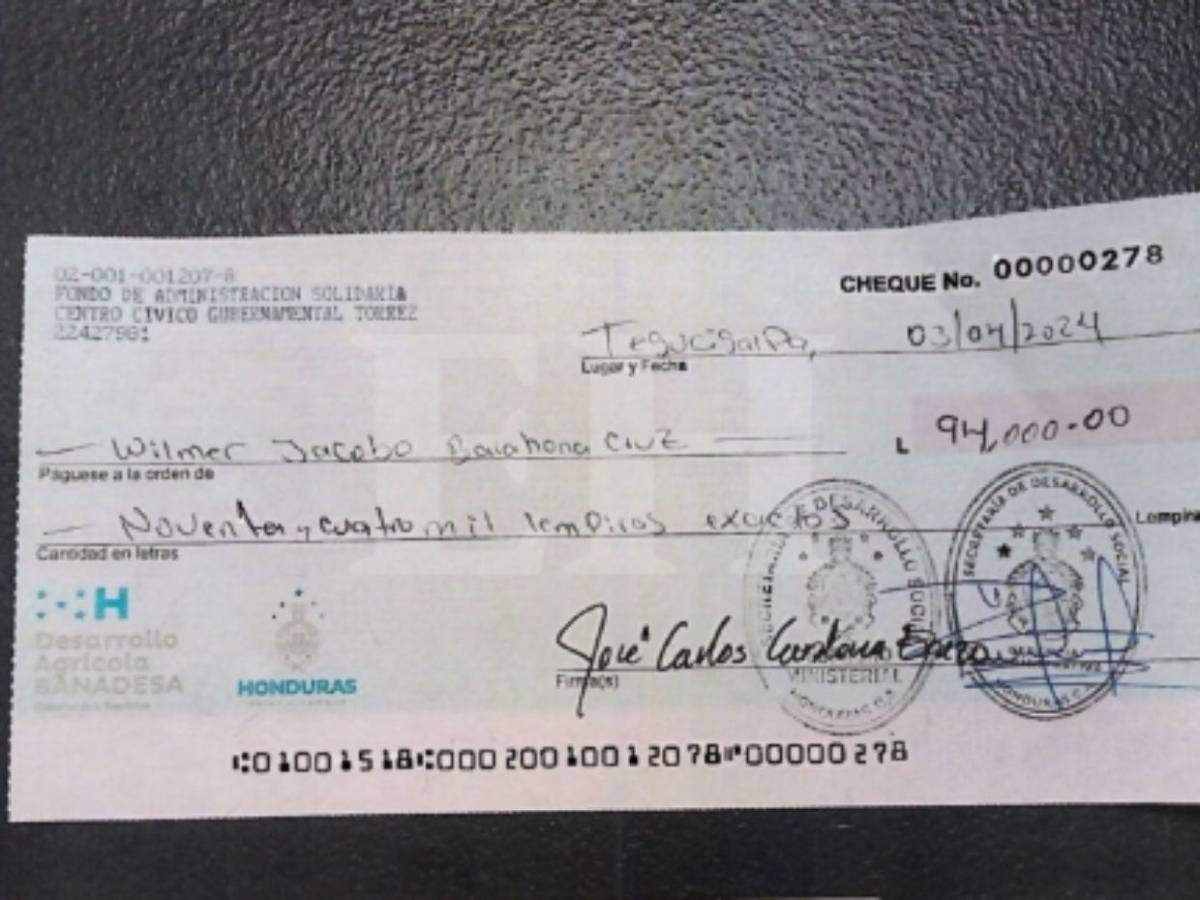 02-001-001207-8
FONDO DE ADMINISTRACION SOLIDARIA
CENTRO CIVICO GUBERNAMENTAL TORREZ
22427981
CHEQUE No. 00000278
Tegucigalpa, 03/04/2024
Lugar y Fecha
Wilmer Jacobo Barahona Cruz
L 94,000.00
Páguese a la orden de
Noventa y cuatro mil lempiras exactos
Lempira
Cantidad en letras
SECRETARÍA DE DESARROLLO SOCIAL
MINISTERIAL
HONDURAS C.A.
SECRETARÍA DE DESARROLLO SOCIAL
HONDURAS C.A.
H
Desarrollo
Agrícola
BANADESA
HONDURAS
José Carlos Cardona
Firma(s)
⑆01001518⑆00020010012078⑈00000278
EH